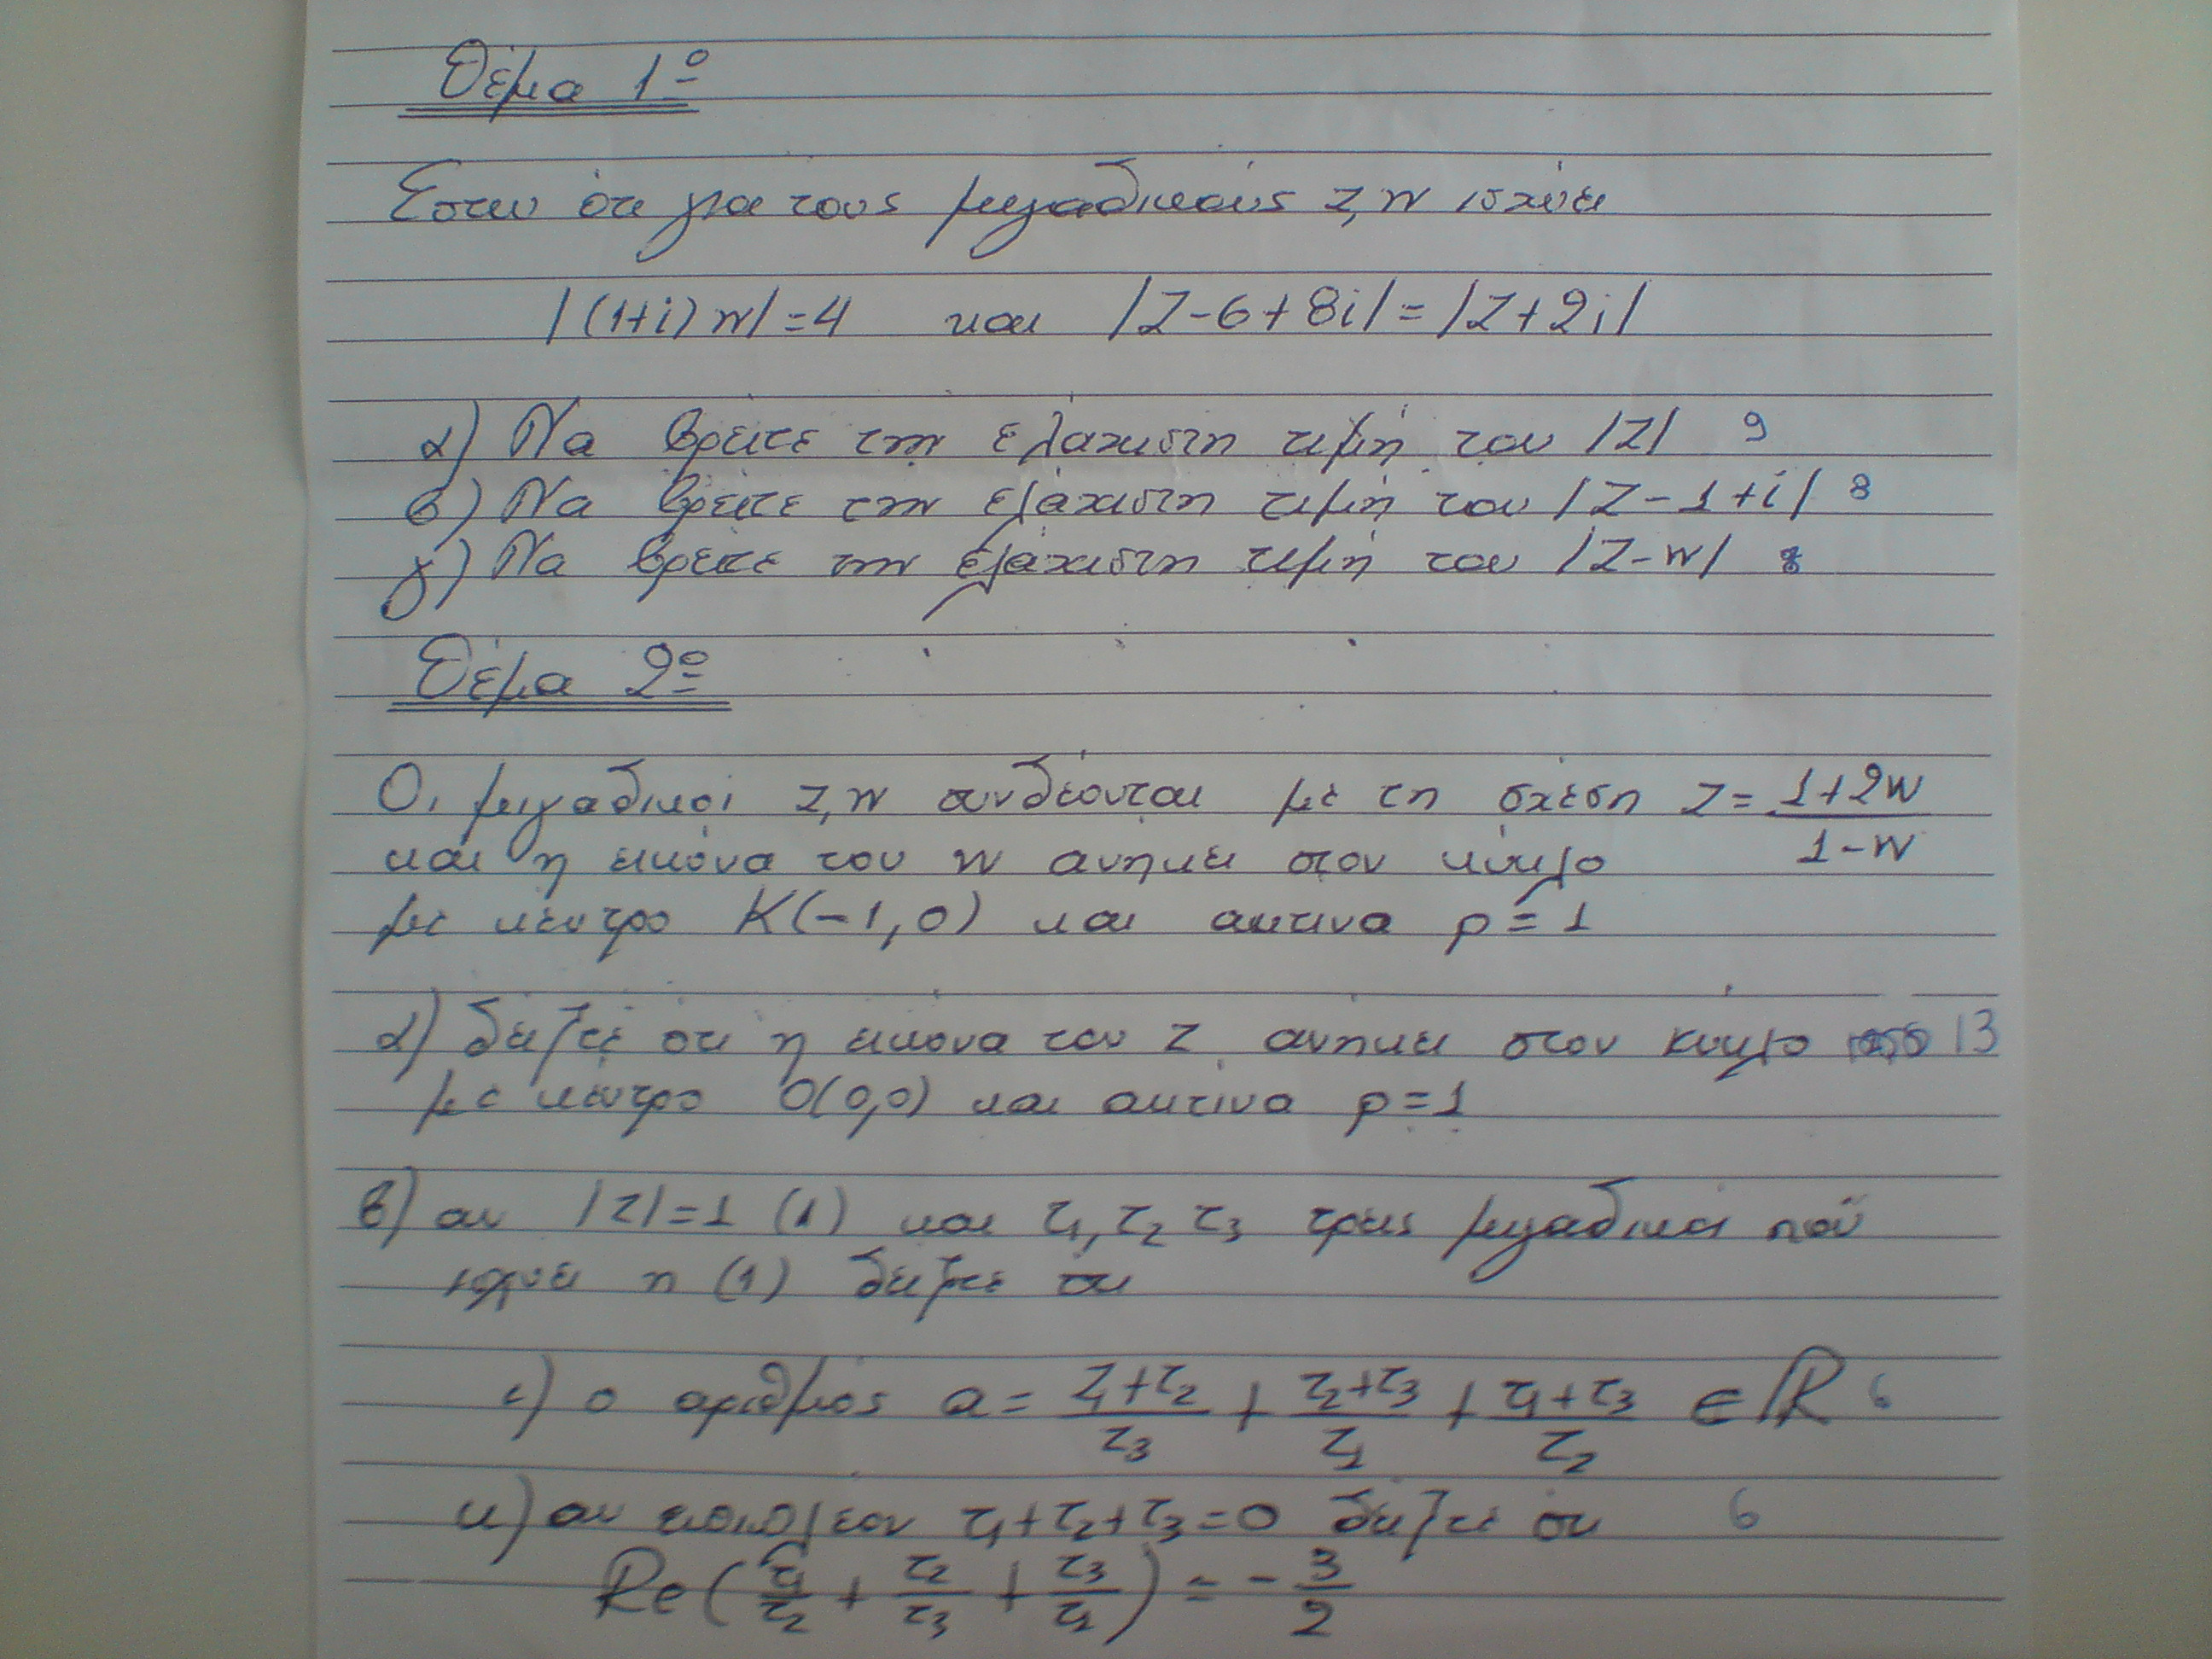 Θέμα 1ο
Έστω ότι για τους μιγαδικούς z, w ισχύει
|(1+i)w|=4 και |z-6+8i|=|z+2i|
α) Να βρείτε την ελάχιστη τιμή του |z| 9
β) Να βρείτε την ελάχιστη τιμή του |z-1+i| 8
γ) Να βρείτε την ελάχιστη τιμή του |z-w| 8
Θέμα 2ο
Οι μιγαδικοί z, w συνδέονται με τη σχέση z = (1+2w)/(1-w)
και η εικόνα του w ανήκει στον κύκλο
με κέντρο K(-1,0) και ακτινα ρ=1
α) δείξτε οτι η εικονα του z ανηκει στον κυκλο 13
με κέντρο O(0,0) και ακτίνα ρ=1
β) αν |z|=1 (1) και z1, z2 z3 τρεις μιγαδικοί που
ισχυει η (1) δείξτε οτι
ι) ο αριθμος a = (z1+z2)/z3 + (z2+z3)/z1 + (z1+z3)/z2 ∈ ℝ 6
ιι) αν επιπλεον z1+z2+z3=0 δείξτε οτι 6
Re(z1/z2 + z2/z3 + z3/z1) = -3/2